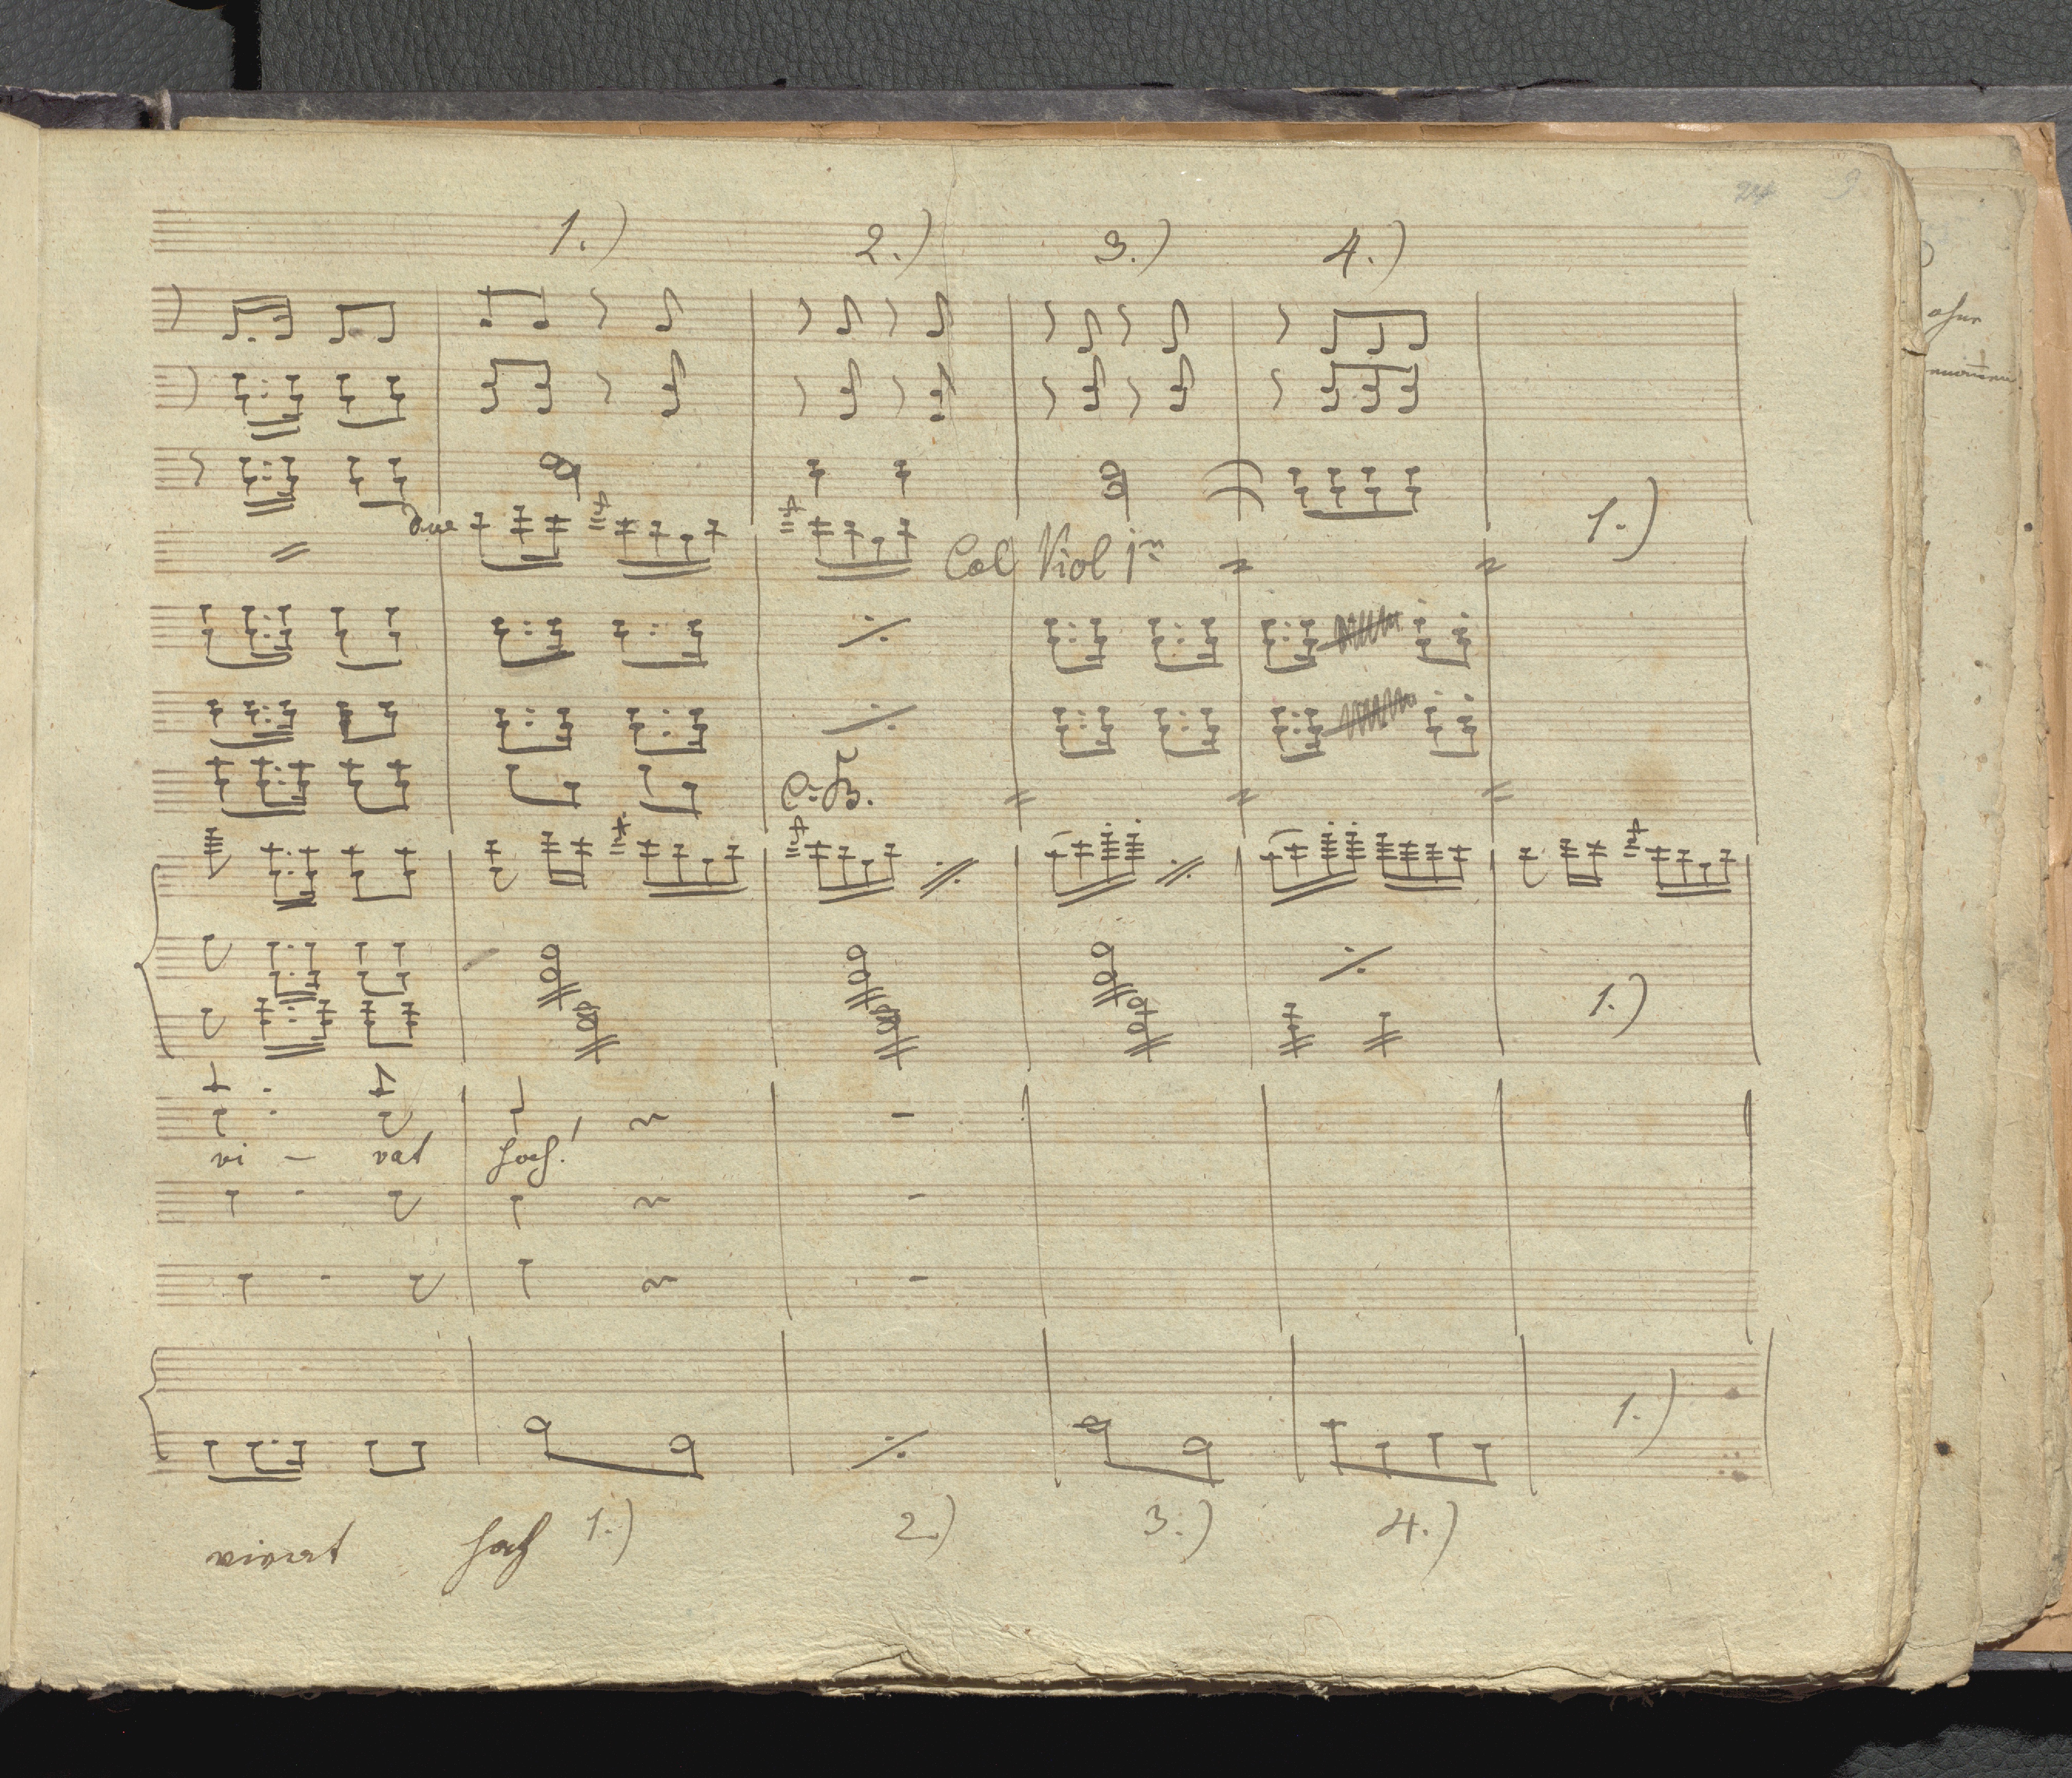 24 9.
1.) 2.) 3.) 4.)
ohne
1.)
Col Viol 1mo
C. B.
1.)
vi - vat hoch!
1.)
vivat hoch 1.) 2.) 3.) 4.)